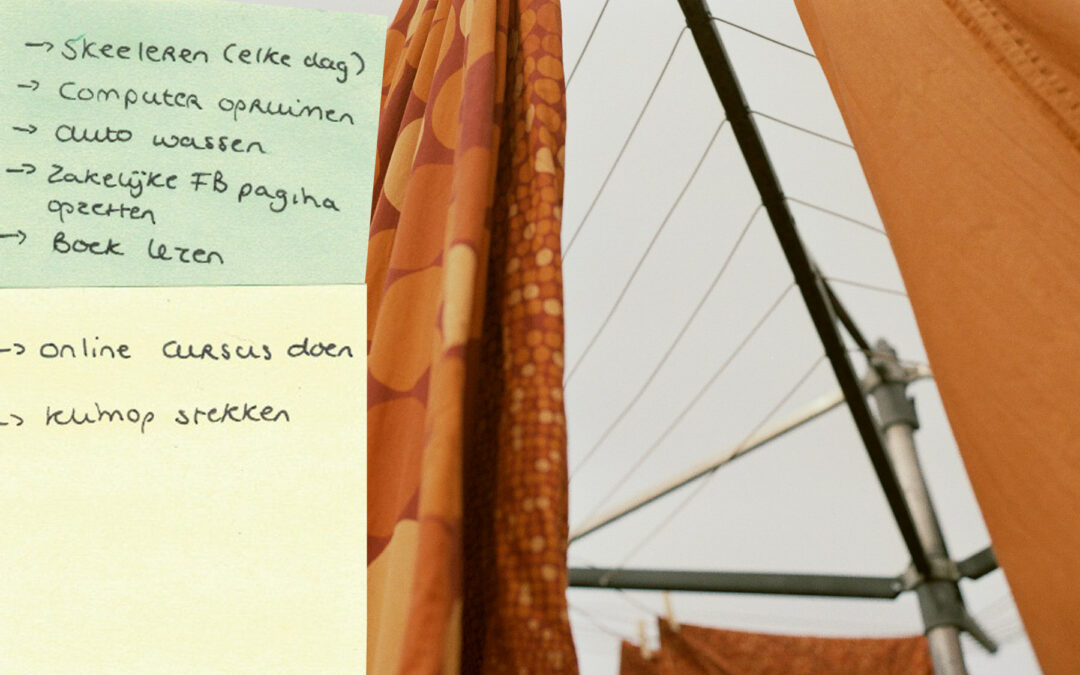 → Skeeleren (elke dag)
→ Computer opruimen
→ auto wassen
→ Zakelijke FB pagina
opzetten
→ Boek lezen
→ online cursus doen
→ klimop stekken